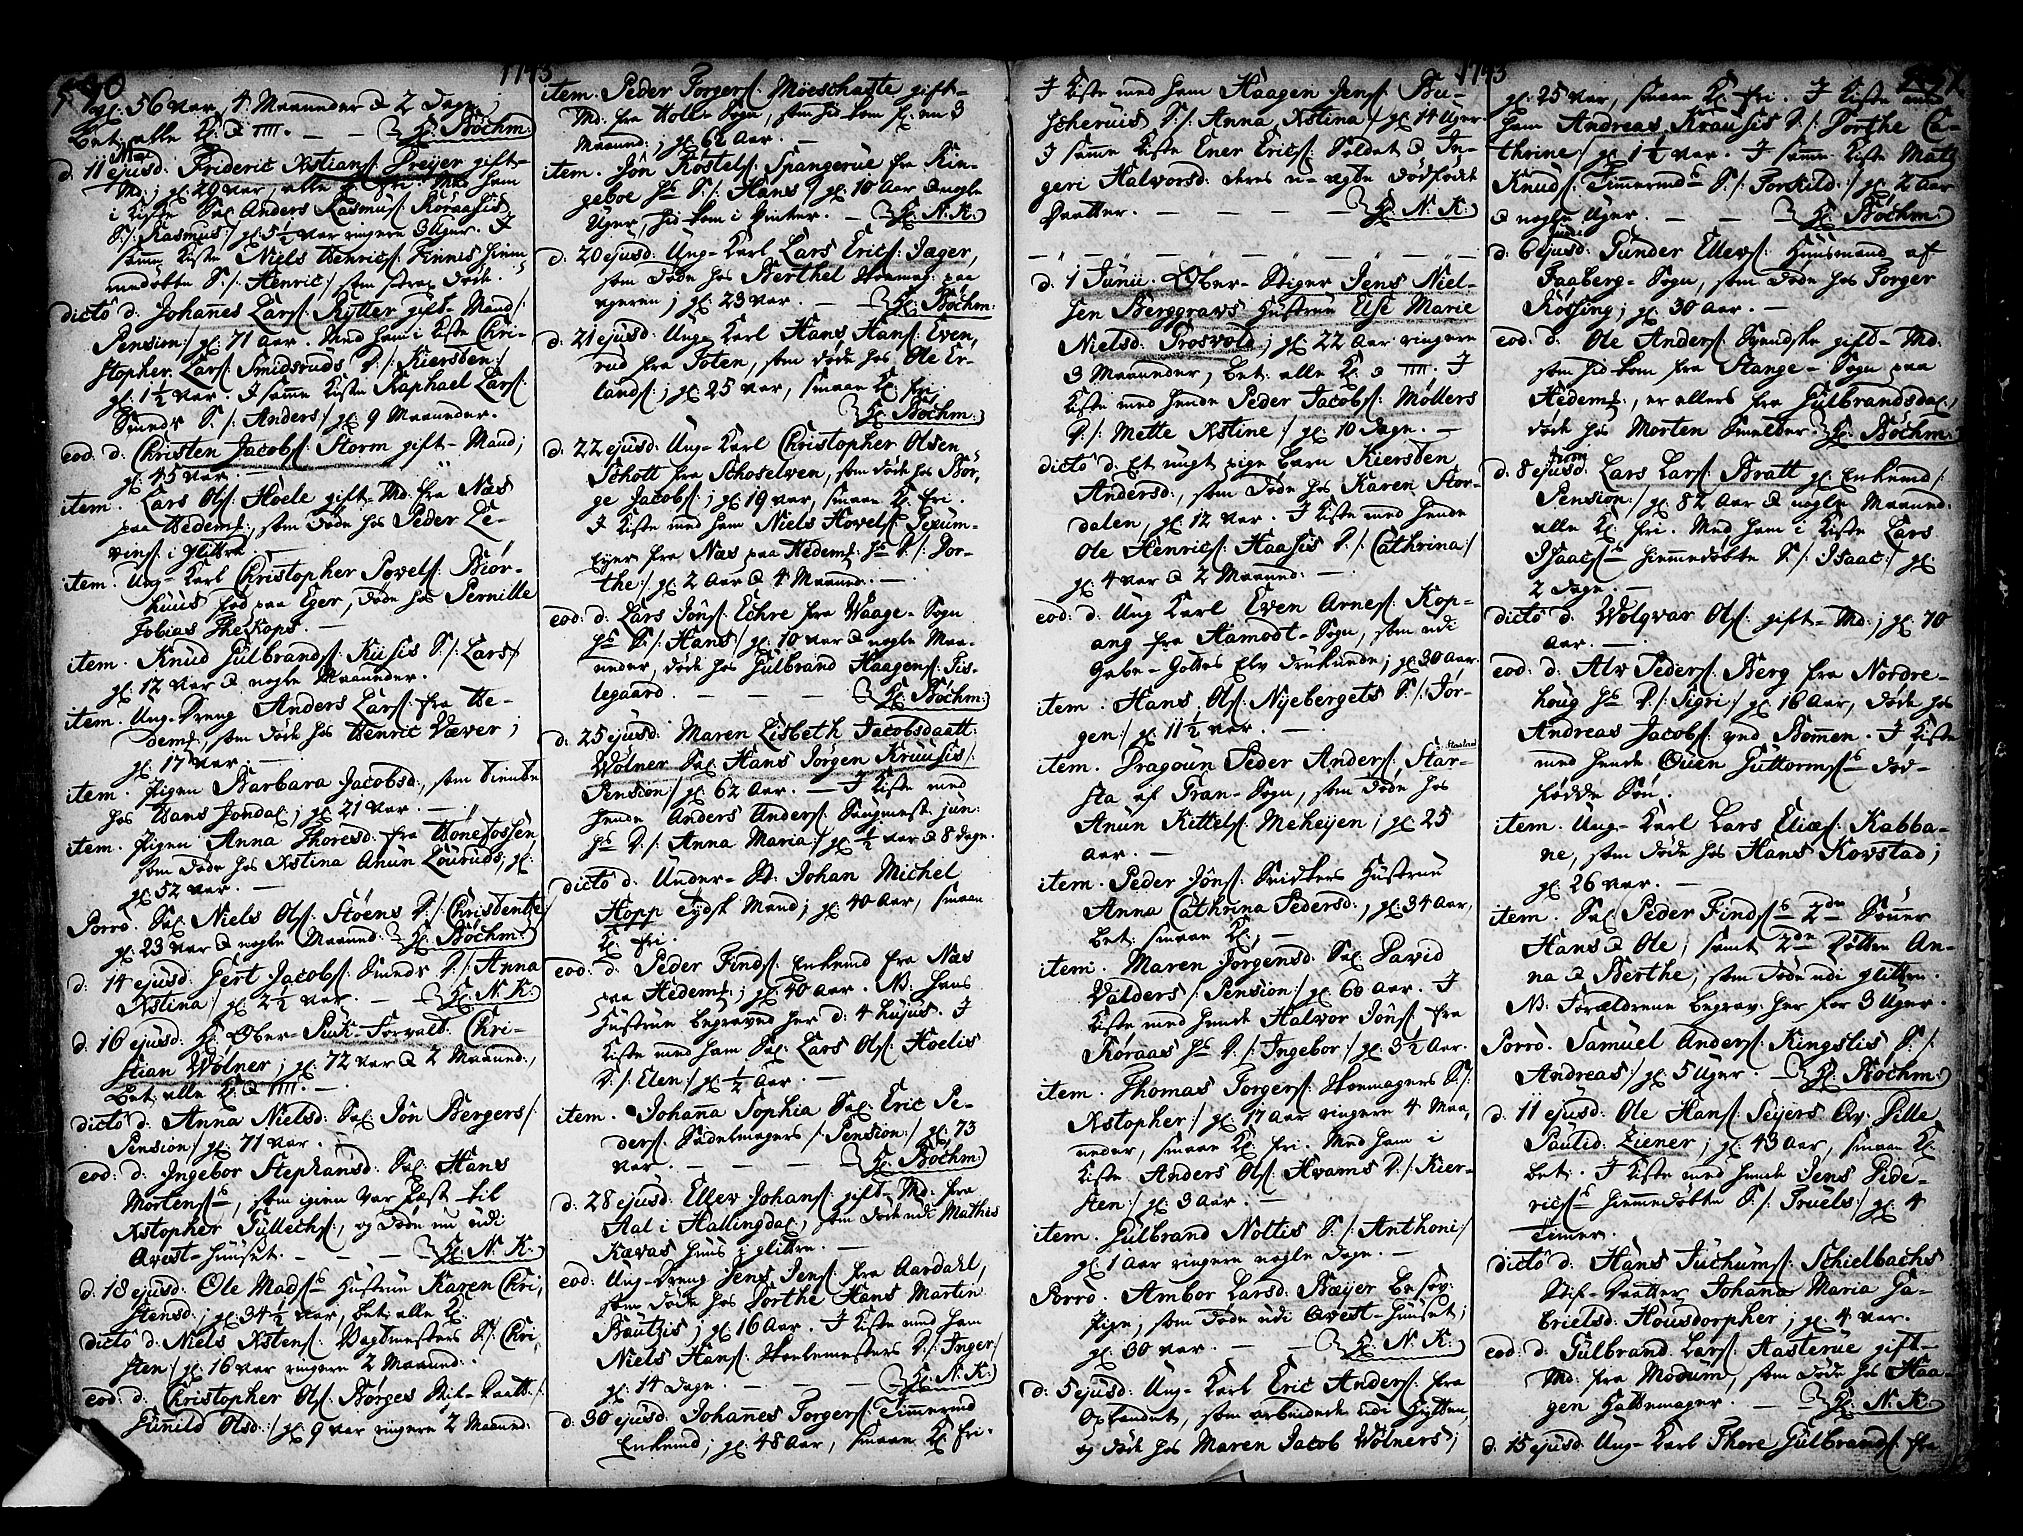 1743
gl. 56 Aar, 4 Maaneder & 2 Dage;
Bet: alle Kl. & 4. Hr. Böchm:
d. 11 ejusd: Frideric Xstians: Preijer gift-
Md; gl. 29 Aar, alle Kl. fri. Med ham
i Kiste Sal. Anders Rasmus: Röraasis
S. /: Rasmus :/ gl. 5½ Aar ringere 3 Uger. I
samme Kiste Niels Henrics: Finnis hiem-
medöbte S. /: Henric :/ som strax döde.
dicto d. Johannes Lars: Rytter gift-Mand /
Pension :/ gl. 71 Aar. Med ham i Kiste Chri-
stopher Lars: Smidsruds D. /: Kiersten :/
gl. 1½ Aar. I samme Kiste Raphael Lars:
Smeds S. /: Anders :/ gl. 9 Maaneder.
eod: d: Christen Jacobs: Storm gift-Mand;
gl. 45 Aar.
item. Lars Ols: Höele gift-Md: fra Næs
paa Hedem:, som döde hos Peder Le-
vins: i Hytten
item. Ung-Karl Christopher Povels: Biör-
huus fød paa Eger, döde hos Pernille
Tobias Theskops.
item. Knud Gulbrands: Kusis S. /: Lars :/
gl. 12 Aar & nogle Maaneder.
item. Ung-Dreng Anders Lars: fra He-
dem:, som döde hos Henric Væver;
gl. 17 Aar.
item. Pigen Barbara Jacobsd:, som tiente
hos Hans Jondal; gl. 21 Aar.
item. Pigen Anna Thoresd: fra Hönefossen,
som döde hos Xstina Anun Louruds, gl.
gl. 52 Aar.
Porrò. Sal. Niels Ols: Stöens D. /: Christentze
gl. 23 Aar & nogle Maaned: Hr. Böchm:
d. 14 ejusd: Gert Jacobs: Smeds D. /: Anna
Xstina :/ gl. 2½ Aar. Hr. N. K:
d. 16 ejusd: Hr. Ober-Stük-Forvalt: Chri-
stian Wölner; gl. 72 Aar & 2 Maaned:,
bet: alle Kl. & 4.
dicto d: Anna Nielsd: Sal. Jön Bergers /
Pension :/ gl. 71 Aar.
eod: d: Ingebor Stephansd: Sal. Hans
Mortens:, som igien var fæst til
Xstopher Tullechs:, og döde nu udi
Avest-huuset. Hr. N. K:
d. 18 ejusd: Ole Mads: Hustrue Karen Chri-
stensd:; gl. 34½ Aar, bet: alle Kl.
dicto d: Niels Xstens: Vagtmesters S. /: Chri-
sten :/ gl. 16 Aar ringere 2 Maaned:
eod: d: Christopher Ols: Börges Stif-Daatt: /
Gunild Olsd: :/ gl. 9 Aar ringere 2 Maaned:
item. Peder Torgers: Möeschatte gift-
Md: fra Hole-Sogn, som hid-kom for en 3
Maaned; gl. 62 Aar.
item. JönKöstels: Spangerue fra Rin-
geboe hs S. /: Hans :/ gl. 10 Aar & nogle
Uger, hid-kom i Vinter. Hr. N. K:
d. 20 ejusd: Ung-Karl Lars Erics: Jager,
som döde hos Berthel Skomag: paa
Ageren; gl. 23 Aar. Hr. Böchm:
d. 21 ejusd: Ung-Karl Hans Hans: Even,
rud fra Toten, som döde hos Ole Er-
lands:; gl. 25 Aar, smaae Kl. fri.
Hr. Böchm:
d. 22 ejusd: Ung-Karl Christopher Olsen
Schott fra Schoselven, som döde hos Bör-
ge Jacobs:; gl. 19 Aar, smaae Kl. fri.
I Kiste med ham Niels Hovels: Pexum-
Eyer fra Næs paa Hedem: hs D. /: Dor-
the :/ gl. 2 Aar & 4 Maaned:
eod: d. Lars Jöns: Echre fra Waage-Sogn
hs S. /: Hans :/ gl. 10 Aar & nogle Maa-
neder, döde hos Gulbrand Haagens: Sis-
legaard. Hr. Böchm:
d. 25 ejusd: Maren Lisbeth Jacobsdaatt:
Wölner Sal. Hans Jörgen Kruusis /
Pension :/ gl. 62 Aar. I Kiste med
hende Anders Anders: Saugmest: jun:
hs D. /: Anna Maria :/ gl. ½ Aar & 8 Dage.
dicto d: Under-St: Johan Michel
Hopp Tydsk Mand; gl. 40 Aar, smaae
Kl. fri.
eod: d: Peder Finds: Enkemd fra Næs
paa Hedem:; gl. 40 Aar. NB. hans
Hustrue begraved her d: 4 hujus. I
Kiste med ham Sal. Lars Ols: Hoelis
D. /: Elen :/ gl. ½ Aar.
item. Johanna Sophia Sal. Eric Pe-
ders: Sadelmagers /: Pension :/ gl. 73
Aar. Hr. Böchm:
d. 28 ejusd: Ellev Johans: gift-Md: fra
Aal i Hallingdal, som döde udi Mathis
Kævas huus i Hytten.
eod: Ung-Dreng Jens Jens: fra Aardahl,
som döde hos Dorthe Hans Martin
Bautzis; gl. 16 Aar. I Kiste med ham
Niels Hans: Skolemesters D. /: Inger :/
gl. 14 Dage. Hr. N. K:
d. 30 ejusd: Johannes Torgers: Timmermd
Enkemd; gl. 48 Aar, smaae Kl. fri.
1743
I Kiste med ham Haagen Jens: Bu-
scheruis D. /: Anna Xstina :/ gl. 14 Uger
I samme Kiste Ener Erics: Soldat & In-
geri Halvorsd: deres u-ægte dödfödt
Daatter. Hr. N. K:
d. 1 Junii. Ober-Stiger Jens Niel-
sen Berggravs Hustrue Else Marie
Nielsd: Trosvold; gl. 22 Aar ringere
3 Maaneder, bet: alle Kl. & 4. I
Kiste med hende Peder Jacobs: Möllers
D. /: Mette Xstine :/ gl. 10 Dage.
dicto d. Et ungt pige Barn Kiersten
Andersd:, som döde hos Karen Stor-
dalen, gl. 12 Aar. I Kiste med hende
Ole Henrics: Haasis D. /: Cathrina :/
gl. 4 Aar & 2 Maaned:
eod: d. Ung Karl Even Arnes: Kop-
ang fra Aamodt-Sogn, som udi
Gabe-Gottes Elv druknede; gl. 30 Aar.
item. Hans Ols: Nyebergets S. /: Jör-
gen :/ gl. 11½ Aar.
item. Dragoun Peder Anders: Star-
sta af Gran-Sogn, som döde hos
Anun Kittels: Meheijen; gl. 25
Aar.
item. Peder Jöns: Snidkers Hustrue
Anna Cathrina Pedersd:, gl. 34 Aar,
bet: smaae Kl.
item. Maren Jörgensd: Sal. David
Valders /: Pension :/ gl. 60 Aar. I
Kiste med hende Halvor Jöns: fra
Röraas hs D. /: Ingebor :/ gl. 3½ Aar.
item. Thomas Torgers: Skomagers S. /:
Xstopher :/ gl. 17 Aar ringere 4 Maa-
neder, smaae Kl. fri. Med ham i
Kiste Anders Ols: Hvams D. /: Kier-
sten :/ gl. 3 Aar.
item. Gulbrand Nottis S. /: Anthoni :/
gl. 1 Aar ringere nogle Dage.
Porrò. Ambor Larsd: Bæijer besov:
Pige, som döde udi Avest-huuset;
gl. 30 Aar. Hr. N. K:
d. 5 ejusd: Ung-Karl Eric Anders: fra
Oplandet, som arbeidede udi Hytten,
og döde hos Maren Jacob Wölners;
gl. 25 Aar, smaae Kl. fri. I Kiste med
ham Andreas Krausis D. /: Dorthe Ca-
thrine :/ gl. 1½ Aar. I samme Kiste Matz
Knuds: Timmermds S. /: Torkild :/ gl. 2 Aar
& nogle Uger. Hr. Böchm:
d. 6 ejusd: Gunder Ellevs: Huusmand af
Faaberg-Sogn, som döde hos Torger
Kössing; gl. 30 Aar.
eod: d. Ole Anders: Svendske gift-Md:
som hid-kom fra Stange-Sogn paa
Hedem:, er ellers fra Gulbrandsdal,
döde hos Morten Smelter. Hr. Böchm:
d. 8 ejusd: Lars Lars: Bratt gl. Enkemd /
Pension :/ gl. 82 Aar & nogle Maaned:
alle Kl. fri. Med ham i Kiste Lars
Isaacs: hiemmedöbte S. /: Isaac :/ gl.
2 Dage.
dicto d. Wolqvar Ols: gift-Md:; gl. 70
Aar.
eod: d. Alv Peders: Berg fra Nordre-
houg hs D. /: Sigri :/ gl. 16 Aar, döde hos
Andreas Jacobs: ved Bommen. I Kiste
med hende Ouen Guttorms: död-
fødde Søn.
item. Ung-Karl Lars Elias: Kabba-
ne, som döde hos Hans Kovstad;
gl. 26 Aar.
item. Sal. Peder Finds: 2de Sönner
Hans & Ole; samt 2de Døttre An-
na & Berthe, som döde udi Hytten.
NB. Forældrene begrav: her for 3 Uger.
Porrò. Samuel Anders: Kingslis S. /:
Andreas :/ gl. 5 Uger. Hr. Böchm:
d. 11 ejusd: Ole Hans: Seijers Qv: Sille
Pautid: Ziener; gl. 43 Aar, smaae Kl.
bet: I Kiste med hende Jens Dide-
rics: hiemmedöbte S. /: Truels :/ gl. 4
Timer.
dicto d: Hans Juchums: Schielbachs
Stif-Daatter Johana Maria Ga-
brielsd: Housdorpher; gl. 4 Aar.
eod: d: Gulbrand Lars: Aasterue gift-
Md: fra Modum, som döde hos Haa-
gen Hattemager. Hr. N. K:
d. 15 ejusd: Ung-Karl Thore Gulbrands: fra